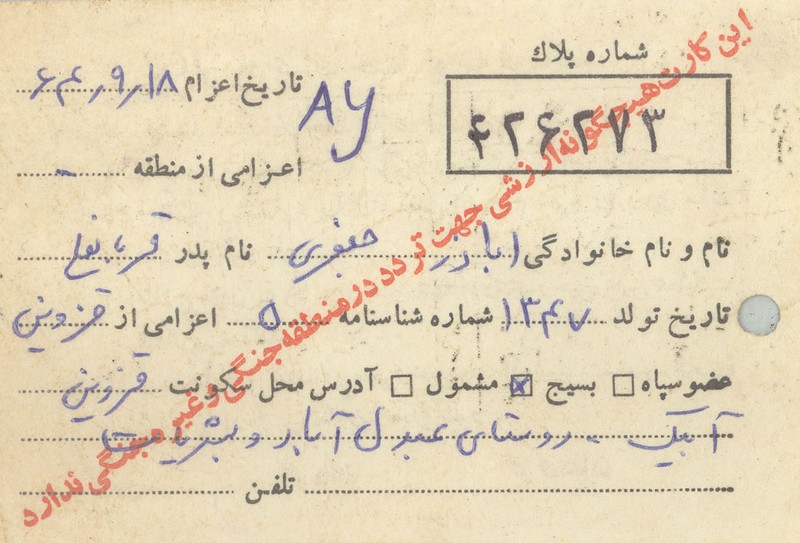 شماره پلاك
۴۲۶۲۷۳
تاریخ اعزام ۶۴٫۹٫۱۸
AY
اعزامی از منطقه -
نام و نام خانوادگی اباذر جعفری نام پدر
تاریخ تولد ۱۳۴۷ شماره شناسنامه ۵ اعزامی از قزوین
عضو سپاه بسیج مشمول آدرس محل سکونت قزوین
آبیک - روستای آباد و بشریات
تلفن
این کارت هیچگونه ارزشی جهت تردد در منطقه جنگی و غیر جنگی ندارد